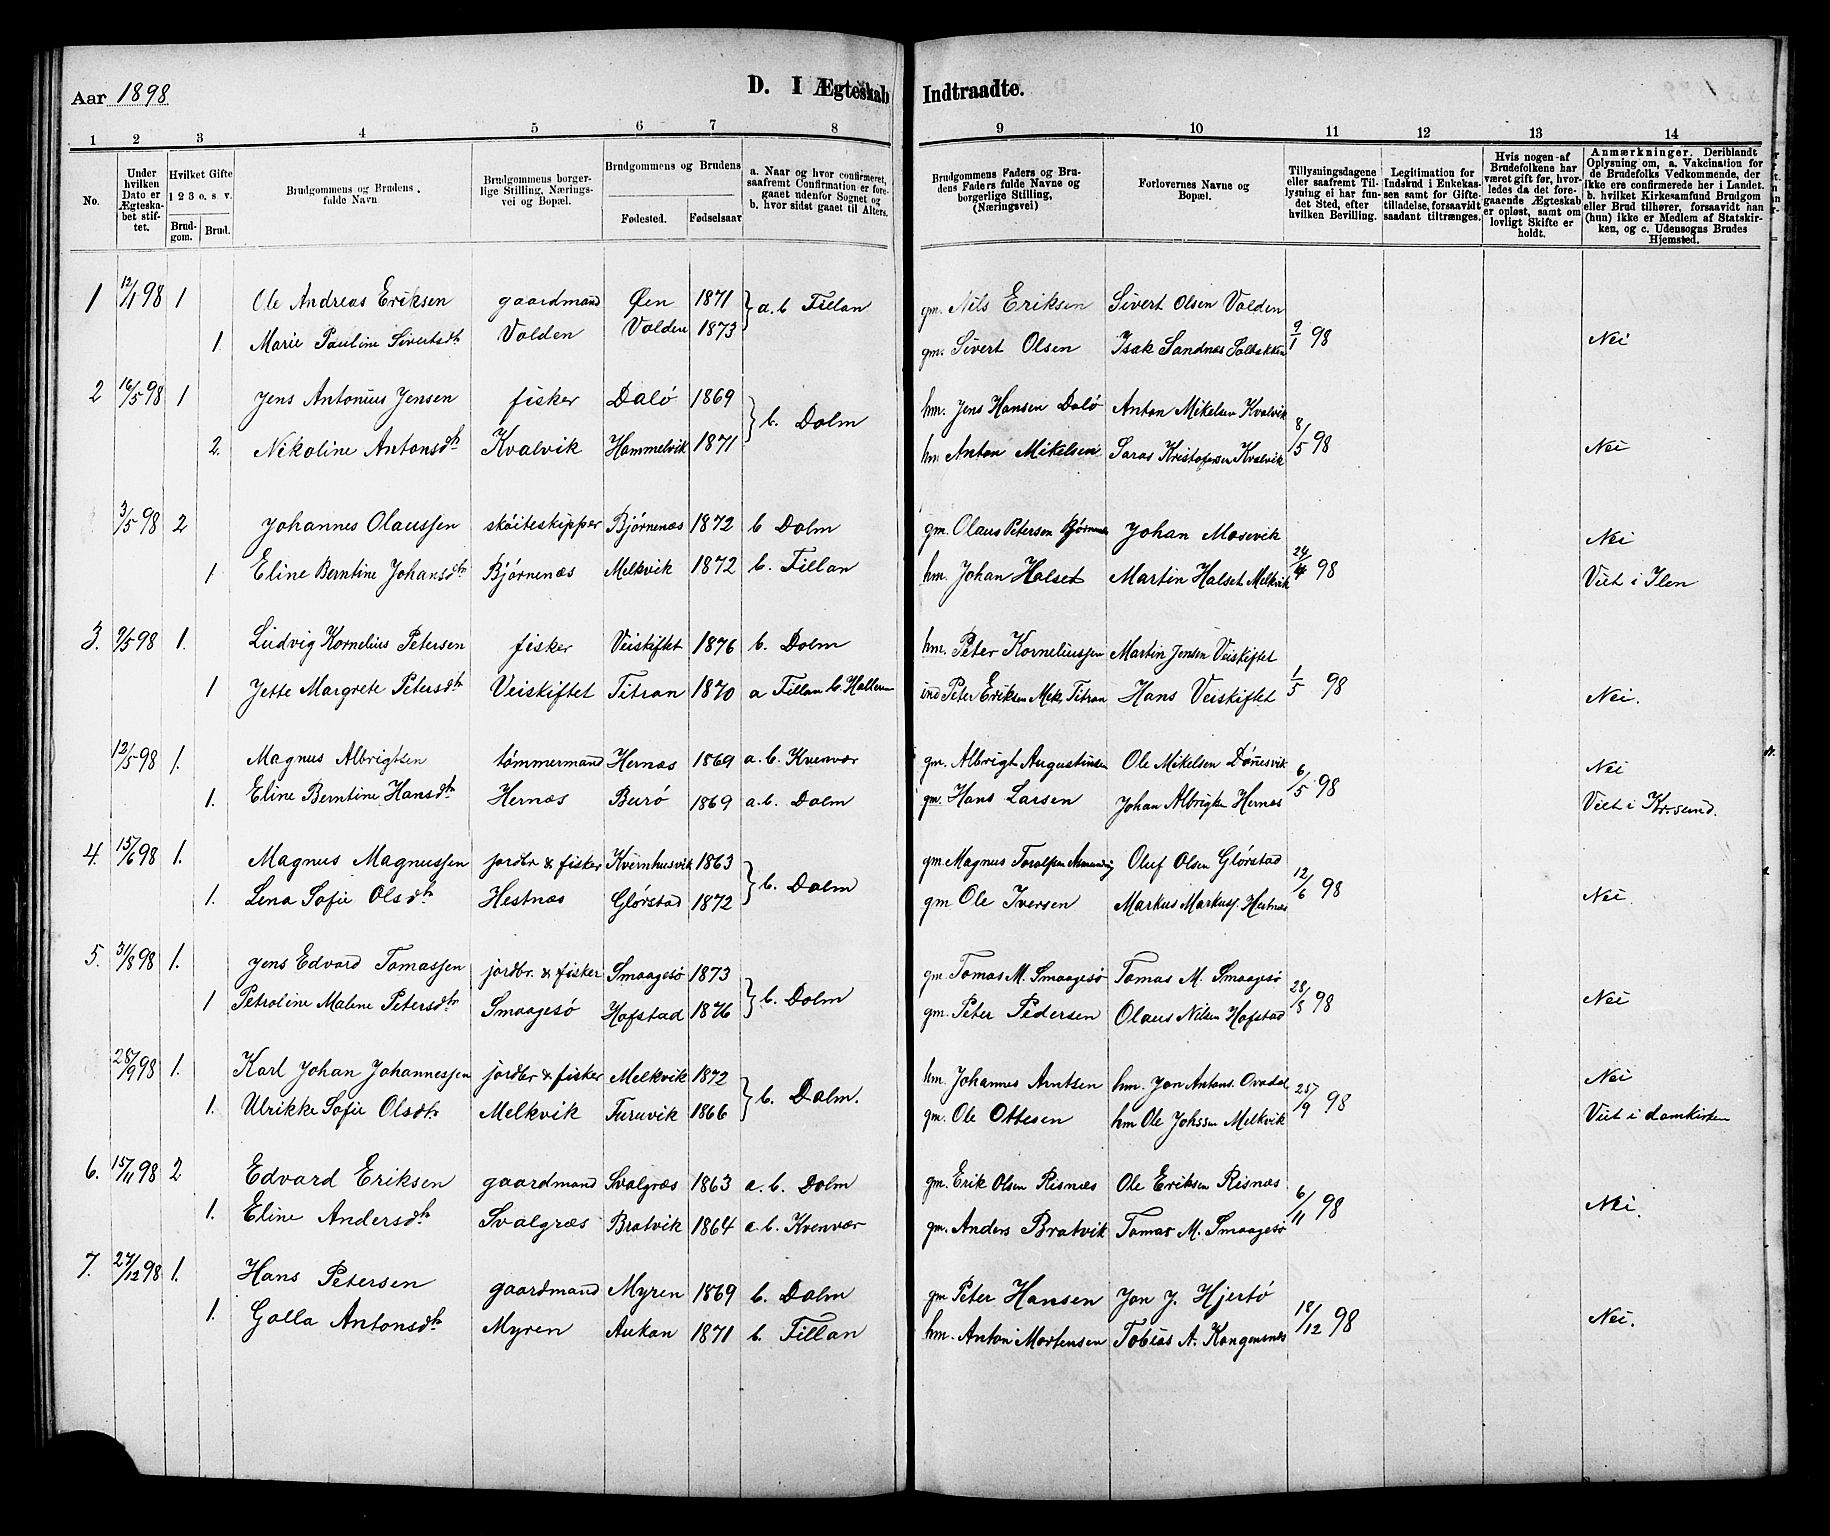 Aar 1898
D. I Ægteskab Indtraadte.
1 2 3 4 5 6 7 8 9 10 11 12 13 14
No.
Under hvilken Dato er Ægteskabet stiftet.
Hvilket Gifte 1 2 3 o. s. v.
Brudgom. Brud.
Brudgommens og Brudens fulde Navn
Brudgommens borgerlige Stilling, Næringsvei og Bopæl.
Brudgommens og Brudens
Fødested. Fødselsaar
a. Naar og hvor confirmeret, saafremt Confirmation er foregaaet udenfor Sognet og b. hvor sidst gaaet til Alters.
Brudgommens Faders og Brudens Faders fulde Navne og borgerlige Stilling, (Næringsvei)
Forlovernes Navne og Bopæl.
Tillysningsdagene eller saafremt Tillysning ei har fundet Sted, efter hvilken Bevilling.
Legitimation for Indskud i Enkekassen samt for Giftetilladelse, forsaavidt saadant tiltrænges.
Hvis nogen af Brudefolkene har været gift før, hvorledes da det foregaaende Ægteskab er opløst, samt om lovligt Skifte er holdt.
Anmærkninger. Deriblandt Oplysning om, a. Vakcination for de Brudefolks Vedkommende, der ikke ere confirmerede her i Landet. b. hvilket Kirkesamfund Brudgom eller Brud tilhører, forsaavidt nan (hun) ikke er Medlem af Statskirken, og c. Udensogns Brudes Hjemsted.
1 12/1 98 1 Ole Andreas Eriksen gaardmand Øen 1871 } a. b Fillan gm. Nils Eriksen Sivert Olsen Valden
1. Marie Pauline Sivertsdtr Valden Valden 1873 gm. Sivert Olsen Isak Sandnes Solbakken 9/1 98 Nei
2 16/5 98 1 Jens Antonius Jensen fisker Dalø 1869 } b. Dolm hm. Jens Hansen Dalø Anton Mikelsen Kvalvik
2. Nikoline Antonsdtr Kvalvik Hammelvik 1871 hm Anton Mikelsen Kristofersen Kvalvik 8/5 98 Nei
3/5 98 2 Johannes Olaussen skøiteskipper Bjørnenæs 1872 b Dolm gm. Olaus Petersen Bjørnenæs Johan Mosevik Nei
1 Eline Berntine Johansdtr Bjørnenæs Melkvik 1872 b. Fillan hm. Johan Halset Martin Halset Melkvik 24/4 98 Viet i Ilen
3. 9/5 98 1. Ludvig Kornelius Petersen fisker Veiskiftet 1876 b. Dolm hm. Peter Korneliussen Martin Jensen Veiskiftet
1 Jette Margrete Petersdtr Veiskiftet Titran 1870 a Fillan b. Halteren ind Peter Eriksen Titran Hans Veiskiftet 1/5 98 Nei.
12/5 98 1. Magnus Albrigtsen tømmermand Hernæs 1869 a. b. Kvenvær gm. Albrigt Augustinsen Ole Mikelsen Nei
1. Eline Berntine Hansdtr Hernæs Burø 1869 a. b. Dolm gm. Hans Larsen Johan Albrigtsen Hernæs 6/5 98 Viet i Kr.sund.
4. 15/6 98 1. Magnus Magnussen jordbr & fisker Kvernhusvik 1863 } b. Dolm gm. Magnus Oluf Olsen Glørstad
1. Lena Sofie Olsdtr Hestnæs Glørstad 1872 gm Ole Iversen Markus Markuss. Hestnæs 12/6 98 Nei.
5. 31/8 98 1. Jens Edvard Tomassen jordbr. & fisker Smaagesø 1873 } b. Dolm gm. Tomas M. Smaagesø Tomas M. Smaagesø
1 Petroline Maline Petersdtr Smaagesø Hofstad 1876 gm. Peter Pedersen Olaus Nilsen Hofstad 28/8 98 Nei
28/9 98 1. Karl Johan Johannessen jordbr & fisker Melkvik 1872 } b. Dolm. hm. Johannes Arntsen hm. Jon Antons. Nei
1. Ulrikke Sofie Olsdtr Melkvik Furuvik 1866 gm. Ole Ottesen hm Ole Johssen Melkvik 25/9 98 Viet i domkirken
6. 15/11 98 2 Edvard Eriksen gaardmand Svalgræs 1863 a. b. Dolm gm. Erik Olsen Risnæs Ole Eriksen Risnæs
1. Eline Andersdtr Svalgræs Bratvik 1864 a. b. Kvenvær gm. Anders Bratvik Tomas M. Smaagesø 6/11 98 Nei.
7. 27/12 98 1. Hans Petersen gaardmand Myren 1869 b. Dolm gm Peter Hansen Jon J. Hjertø
1. Golla Antonsdtr Myren Aukan 1871 b. Fillan hm. Anton Mortensen Tobias A. Kongensnes 18/12 98 Nei.